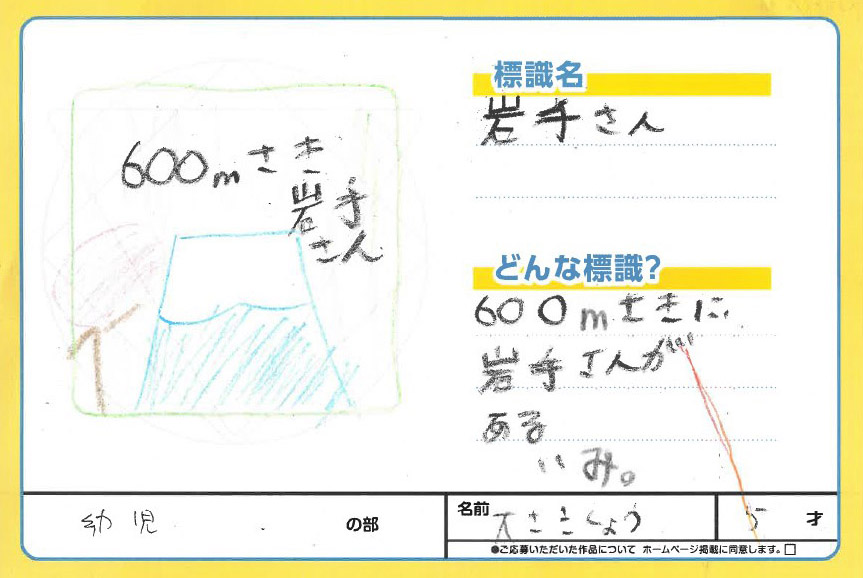 600mさき
岩手
さん
標識名
岩手さん
どんな標識?
600mさきに
岩手さんが
ある
いみ。
幼児 の部
名前 大さききょう 5 才
●ご応募いただいた作品について ホームページ掲載に同意します。□